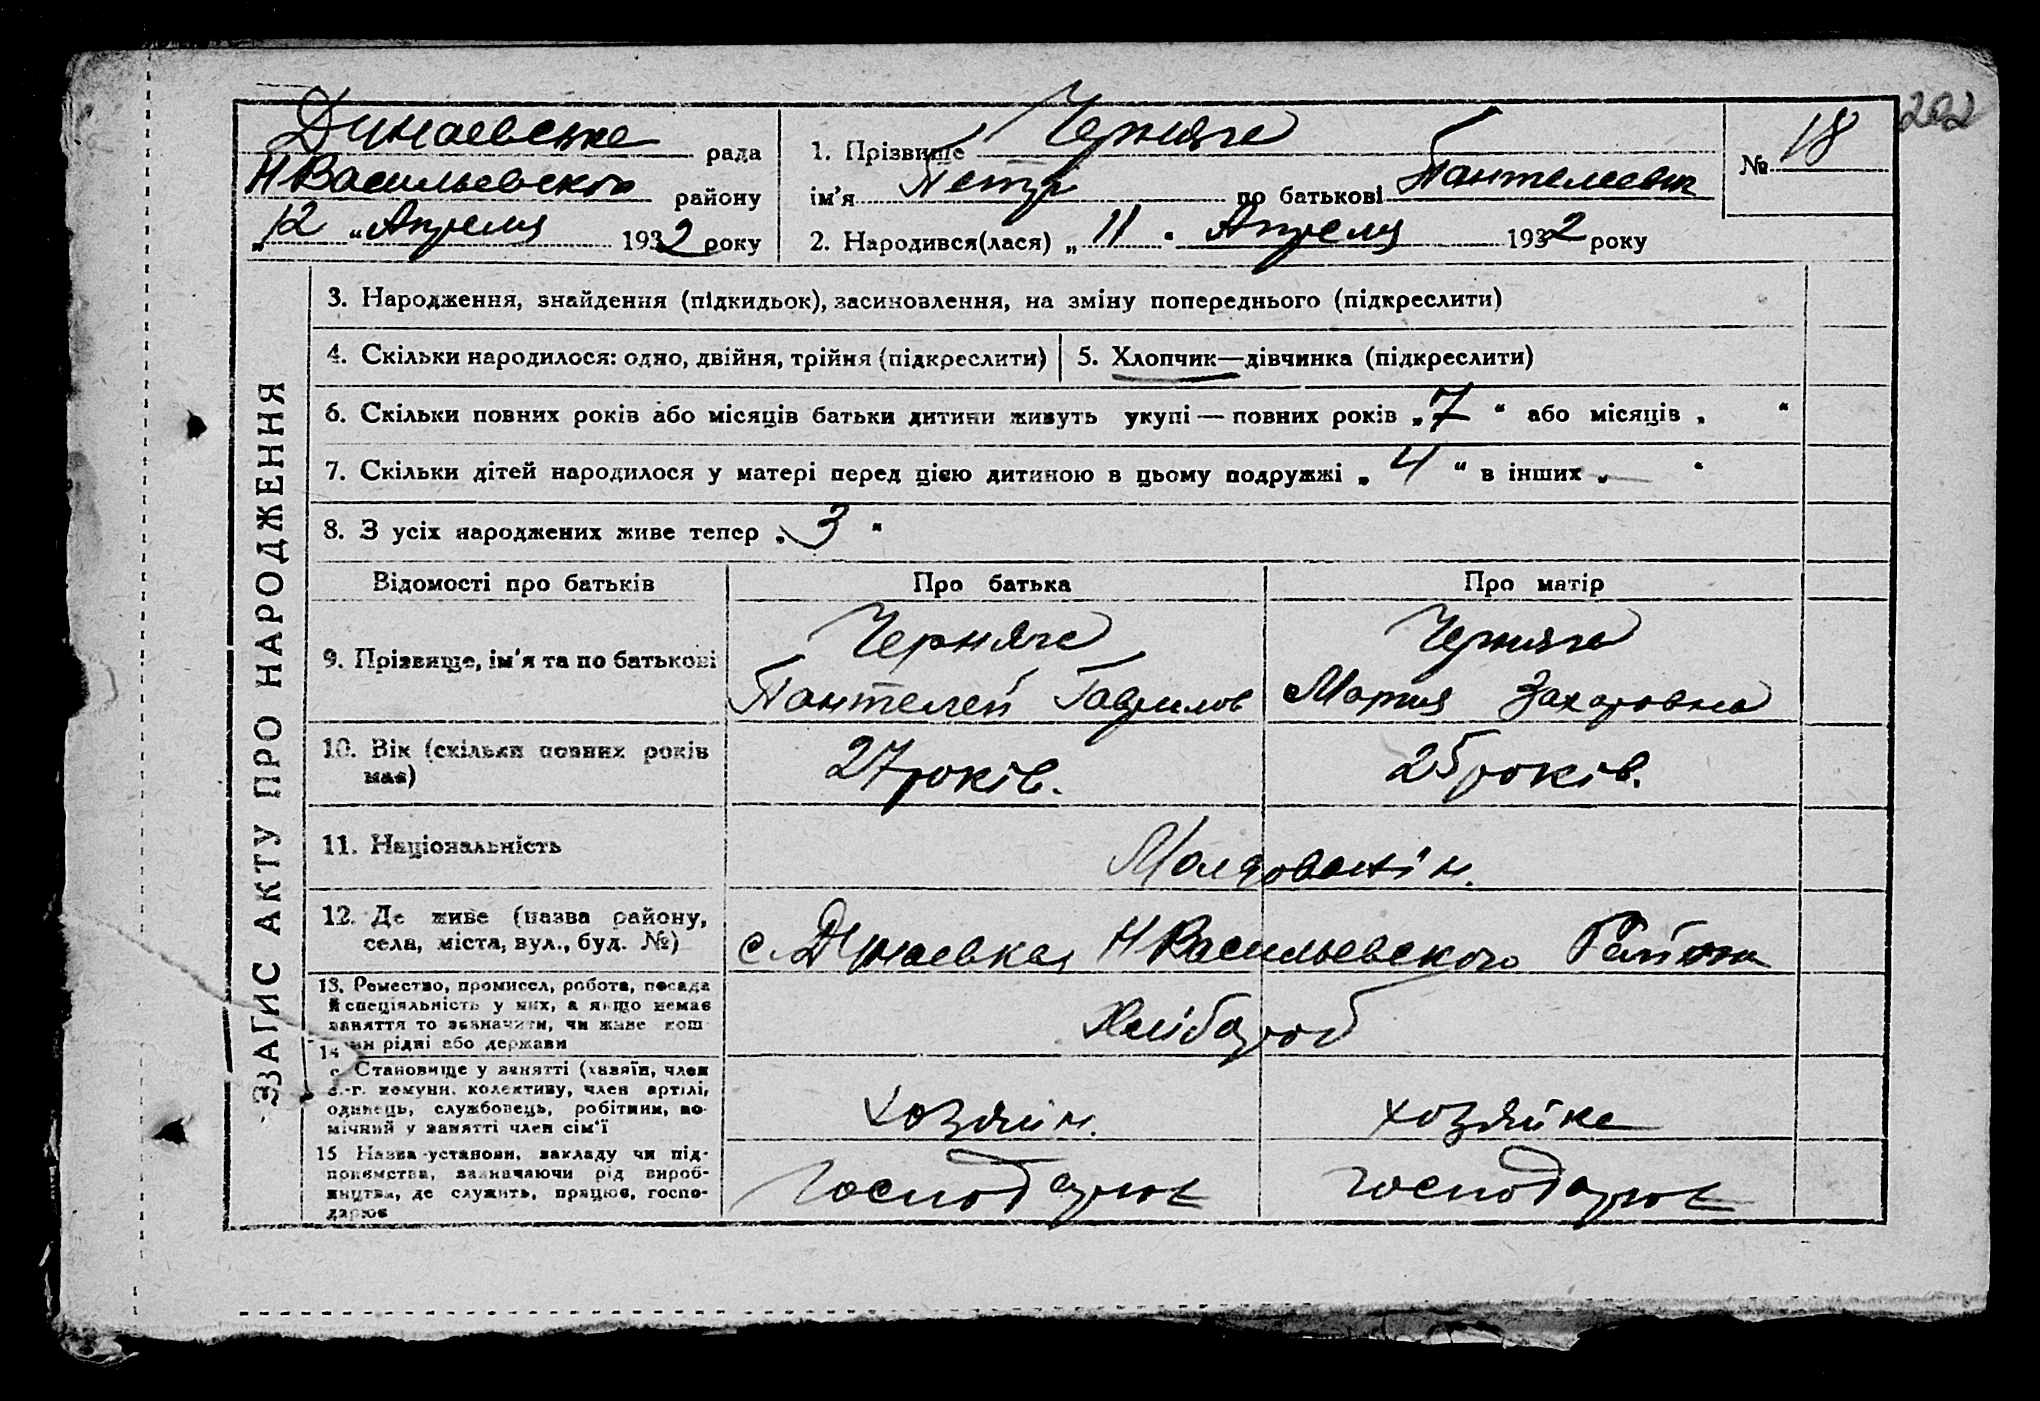 202
Динаевске рада
НВасильевского району
„12“ Апреля 1932 року
1. Прізвище Черняге
ім'я Петр по батькові Пантелеевич
2. Народився(лася) „11“ Апреля 1932 року
№ 18
ЗАПИС АКТУ ПРО НАРОДЖЕННЯ
3. Народження, знайдення (підкидьок), засиновлення, на зміну попереднього (підкреслити)
4. Скільки народилося: одно, двійня, трійня (підкреслити)
5. Хлопчик—дівчинка (підкреслити)
6. Скільки повних років або місяців батьки дитини живуть укупі — повних років „7“ або місяців „ “
7. Скільки дітей народилося у матері перед цією дитиною в цьому подружжі „4“ в інших „— “
8. З усіх народжених живе тепер „3“
Відомості про батьків
Про батька
Про матір
9. Прізвище, ім'я та по батькові
Черняге
Пантелей Гаврилов
Черняге
Мария Захаровна
10. Вік (скільки повних років
має)
27 років.
25 років.
11. Національність
Молдованін.
12. Де живе (назва району,
села, міста, вул., буд. №)
с. Дунаевка НВасильевского Району
13. Ремество, промисел, робота, посада
й спеціяльність у них, а якщо немає
заняття то зазначити, чи живе кош
рідні або держави
Хлібороб
14
Становище у занятті (хазяїн, член
с.-г. комуни, колективу, член артілі,
одинець, службовець, робітник, по-
мічний у занятті член сім'ї
хозяин.
хозяйке
15 Назва установи, закладу чи під-
приємства, зазначаючи рід вироб-
ництва, де служить, працює, госпо-
дарює
господарює
господарює